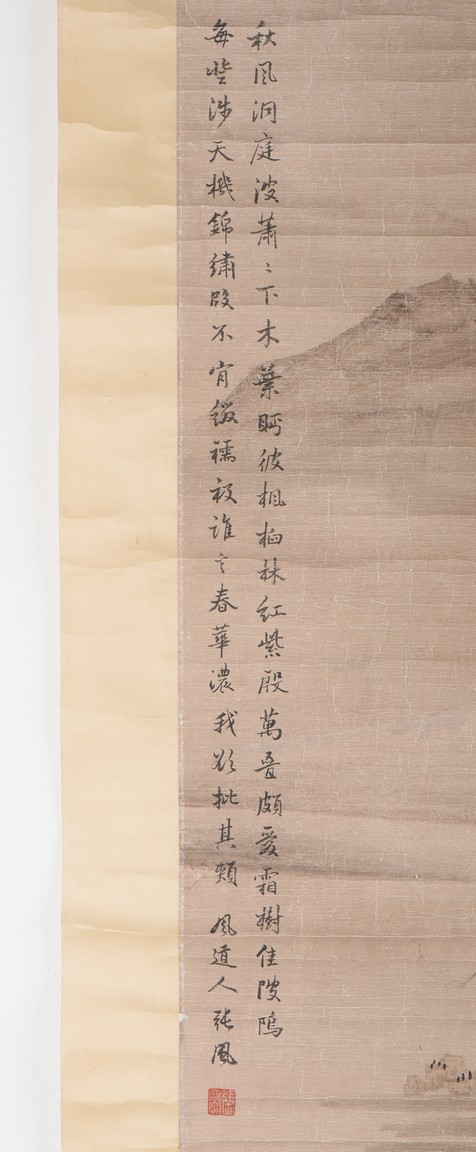 秋風洞庭波蕭〻下木葉眄彼楓柏林紅紫殷萬疊頗愛霜樹佳陂隖
每登涉天機錦繡段不肯綴襦衱誰言春華濃我欲批其頰 風道人張風